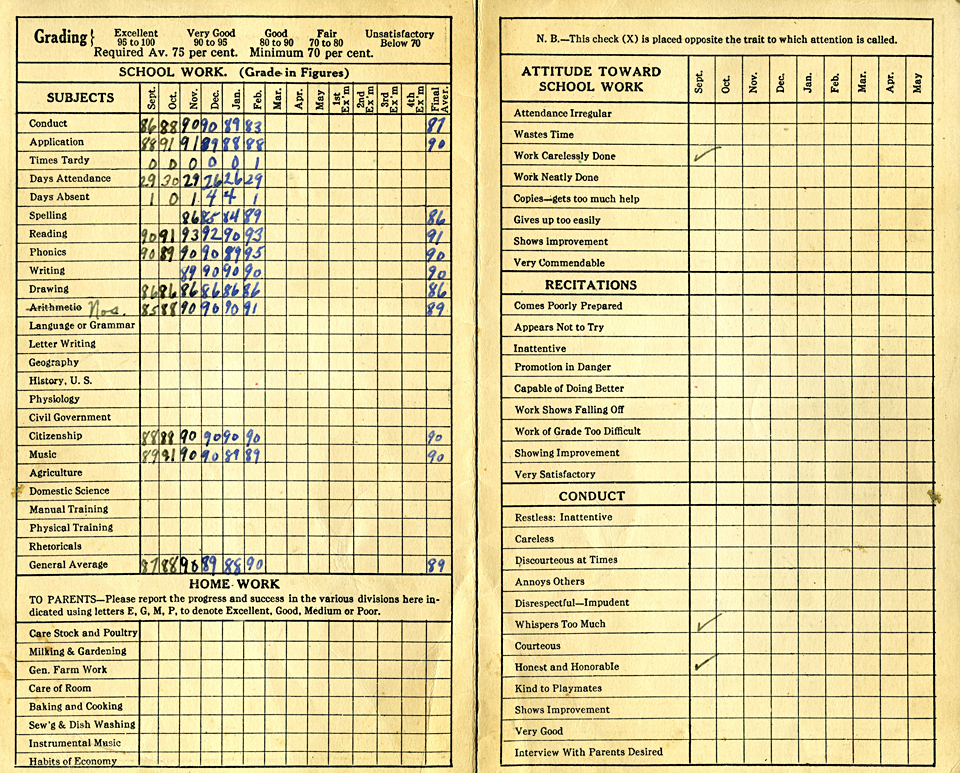 Grading} Excellent Very Good Good Fair Unsatisfactory
95 to 100 90 to 95 80 to 90 70 to 80 Below 70
Required Av. 75 per cent. Minimum 70 per cent.
SCHOOL WORK. (Grade in Figures)
SUBJECTS Sept. Oct. Nov. Dec. Jan. Feb. Mar. Apr. May 1st Ex'm 2nd Ex'm 3rd Ex'm 4th Ex'm Final Aver.
Conduct 86 88 90 90 89 83 87
Application 88 91 91 89 88 88 90
Times Tardy 0 0 0 0 0 1
Days Attendance 29 30 29 26 26 29
Days Absent 1 0 1 4 4 1
Spelling 86 85 84 89 86
Reading 90 91 93 92 90 93 91
Phonics 90 89 90 90 89 95 90
Writing 89 90 90 90 90
Drawing 86 86 86 86 86 86 86
Arithmetic Nos. 85 88 90 90 90 91 89
Language or Grammar
Letter Writing
Geography
History, U. S.
Physiology
Civil Government
Citizenship 88 88 90 90 90 90 90
Music 89 91 90 90 89 89 90
Agriculture
Domestic Science
Manual Training
Physical Training
Rhetoricals
General Average 87 88 90 89 88 90 89
HOME WORK
TO PARENTS—Please report the progress and success in the various divisions here in-
dicated using letters E, G, M, P, to denote Excellent, Good, Medium or Poor.
Care Stock and Poultry
Milking & Gardening
Gen. Farm Work
Care of Room
Baking and Cooking
Sew'g & Dish Washing
Instrumental Music
Habits of Economy
N. B.—This check (X) is placed opposite the trait to which attention is called.
ATTITUDE TOWARD
SCHOOL WORK Sept. Oct. Nov. Dec. Jan. Feb. Mar. Apr. May
Attendance Irregular
Wastes Time
Work Carelessly Done ✓
Work Neatly Done
Copies—gets too much help
Gives up too easily
Shows Improvement
Very Commendable
RECITATIONS
Comes Poorly Prepared
Appears Not to Try
Inattentive
Promotion in Danger
Capable of Doing Better
Work Shows Falling Off
Work of Grade Too Difficult
Showing Improvement
Very Satisfactory
CONDUCT
Restless: Inattentive
Careless
Discourteous at Times
Annoys Others
Disrespectful—Impudent
Whispers Too Much ✓
Courteous
Honest and Honorable ✓
Kind to Playmates
Shows Improvement
Very Good
Interview With Parents Desired